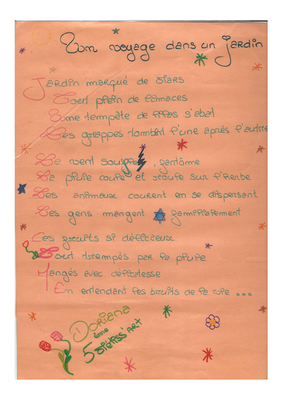 Mon voyage dans un jardin
Jardin marqué de stars
Tout plein de limaces
Une tempête de s'abat
Des grappes tombent l'une après l'autre
Le vent fantôme
La pluie coule et étouffe sur l'herbe
Les animaux courent en se dispersant
Les gens mangent familialement
Ces biscuits si délicieux
Tout trempés par la pluie
Mangés avec délicatesse
En entendant les bruits de la rue ...
Doriana
5ème